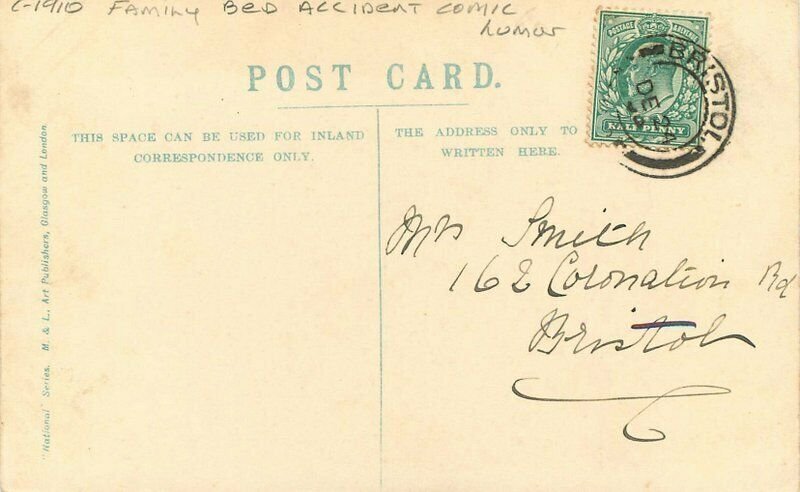 C-1910 FAMILY BED ACCIDENT COMIC
humor
POST CARD.
THIS SPACE CAN BE USED FOR INLAND
CORRESPONDENCE ONLY.
THE ADDRESS ONLY TO
WRITTEN HERE.
POSTAGE REVENUE
HALF PENNY
BRISTOL
DE 24
Mrs Smith
162 Coronation Rd
Bristol
"National" Series. M. & L., Art Publishers, Glasgow and London.